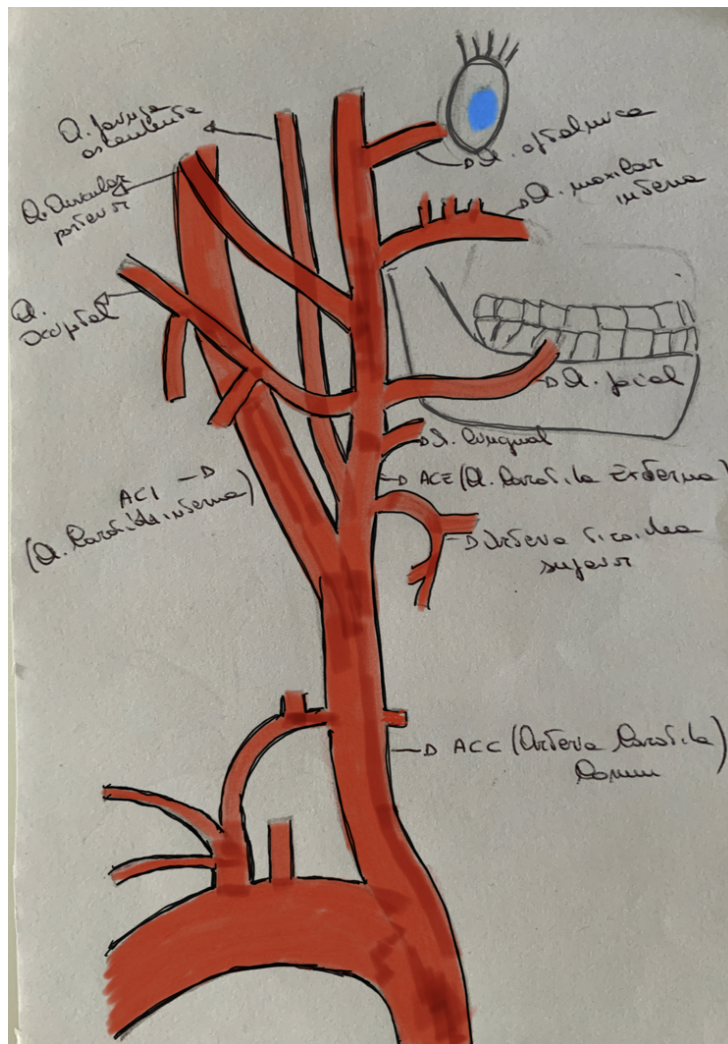 A. faringea
ascendente
A. Auricular
posterior
A. oftalmica
A. maxilar
interna
A.
Occipital
A. facial
A. lingual
ACI
(A. Carotida interna)
ACE (A. Carotida Externa)
Arteria tiroidea
superior
ACC (Arteria Carotida)
Comun